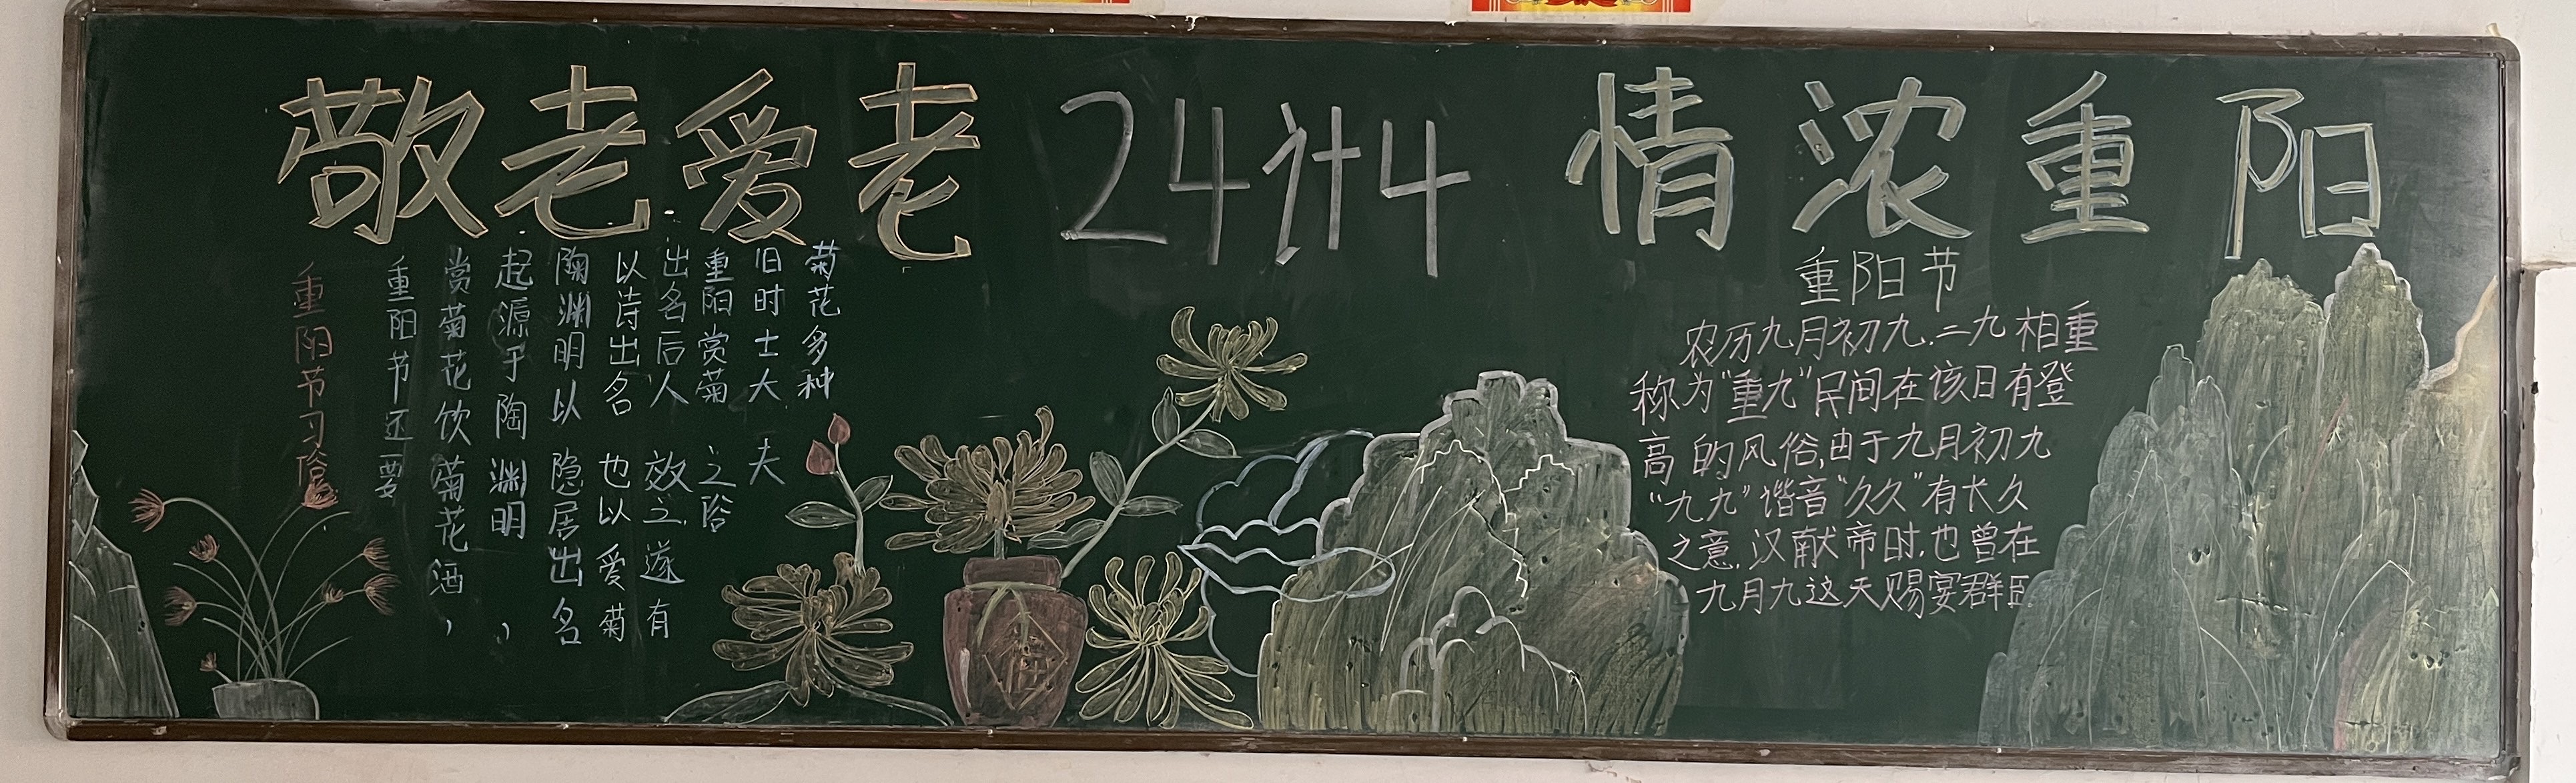 敬老爱老 24计4 情浓重阳
重阳节习俗
重阳节还要
赏菊花饮菊花酒,
起源于陶渊明,
陶渊明以隐居出名
以诗出名也以爱菊
出名后人效之,遂有
重阳赏菊之俗
旧时士大夫
菊花多种
重阳节
农历九月初九.二九相重
称为"重九"民间在该日有登
高的风俗,由于九月初九
"九九"谐音"久久"有长久
之意.汉献帝时.也曾在
九月九这天赐宴群臣